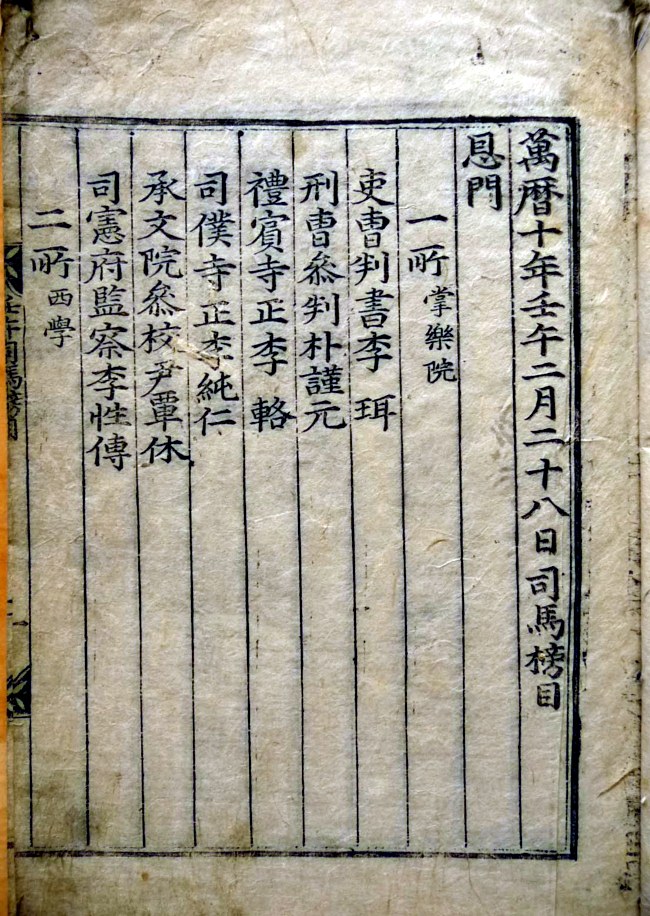 萬曆十年壬午二月二十八日司馬榜目
恩門
一所 掌樂院
吏曹判書李 珥
刑曹叅判朴謹元
禮賓寺正李 輅
司僕寺正李純仁
承文院叅校尹覃休
司憲府監察李性傳
二所 西學
壬午司馬榜目